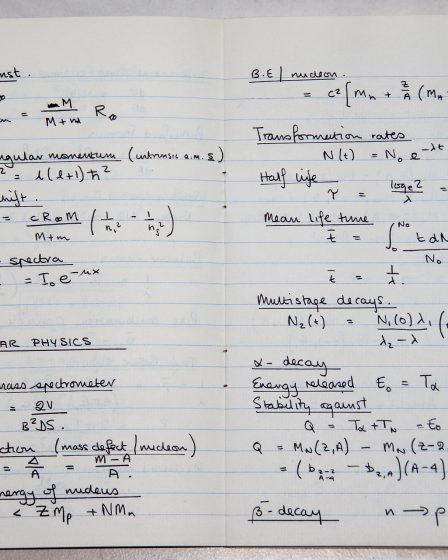 nst.
∞
m = M/(M+m) R∞
ngular momentum (intrinsic a.m. s)
² = l(l+1)ħ²
hift.
= cR∞M/(M+m) (1/n₁² - 1/n₂²)
spectra
= I₀e^-μx
AR PHYSICS
mass spectrometer
= QV/B²DS.
ction (mass defect/nucleon)
= Δ/A = M-A/A.
nergy of nucleus
< ZMp + NMn
B.E/nucleon.
= c²[Mn + Z/A (Mn
Transformation rates
N(t) = N₀ e^-λt
Half life
τ = loge2/λ =
Mean life time
t̄ = ∫₀^N₀ t dN/N₀
t̄ = 1/λ.
Multistage decays.
N₂(t) = N₁(0)λ₁/(λ₂-λ) (
α-decay
Energy released E₀ = Tα
Stability against
Q = Tα + TN = E₀
Q = MN(Z,A) - MN(Z-2
= (b Z-2 A-4 - b Z,A)(A-4)
β⁻-decay n → p